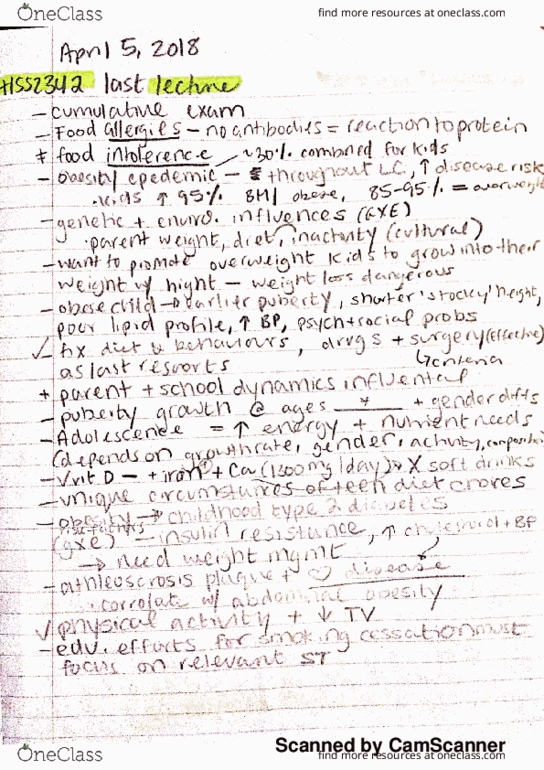 OneClass
find more resources at oneclass.com
April 5, 2018
HSS2342 last lecture
- cumulative exam
- Food allergies - no antibodies = reaction to protein
* food intolerence ~30% combined for kids
- obesity epedemic - throughout LC, ↑ disease risk
. kids ↑ 95% BMI obese, 85-95% = overweight
- genetic + enviro. influences (GXE)
. parent weight, diet, inactivity (cultural)
- want to promote overweight kids to grow into their
weight w/ hight - weight loss dangerous
- obese child → earlier puberty, shorter 'stocky' height,
poor lipid profile, ↑ BP, psych + social probs
✓ fix diet & behaviours, drugs + surgery (effective)
as last resorts ↳ criteria
+ parent + school dynamics influential
- puberty growth @ ages + gender diffs
- Adolescence = ↑ energy + nutrient needs
(depends on growth rate, gender, activity, composition
- Vit D - + iron + Ca (1300mg/day) X soft drinks
- unique circumstances of teen diet
- obesity → childhood type 2 diabetes
(gxe) - insulin resistance, ↑ cholesterol + BP
→ need weight mgmt
- plaque + ♡ disease
. correlate w/ abdominal obesity
✓ physical activity + ↓ TV
- edu. efforts for smoking cessation must
focus on relevant ST
Scanned by CamScanner
OneClass
find more resources at oneclass.com